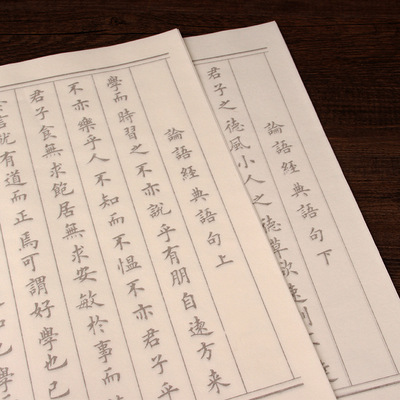 論語經典語句上
學而時習之不亦說乎有朋自遠方來
不亦樂乎人不知而不慍不亦君子乎
君子食無求飽居無求安敏於事而
言就有道而正焉可謂好學也已
論語經典語句下
君子之德風小人之德草欲速則